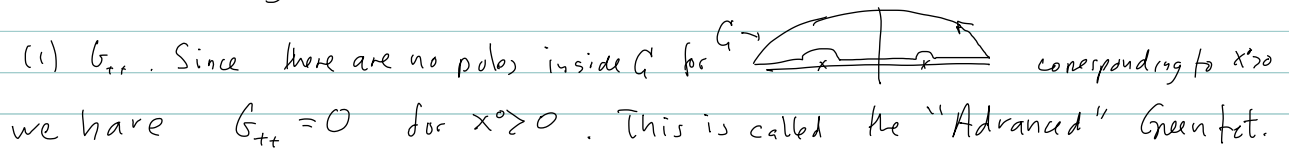 (1) G₊₊. Since there are no poles inside G for G → x x corresponding to x⁰>0
we have G₊₊ = 0 for x⁰ > 0. This is called the "Advanced" Green fct.